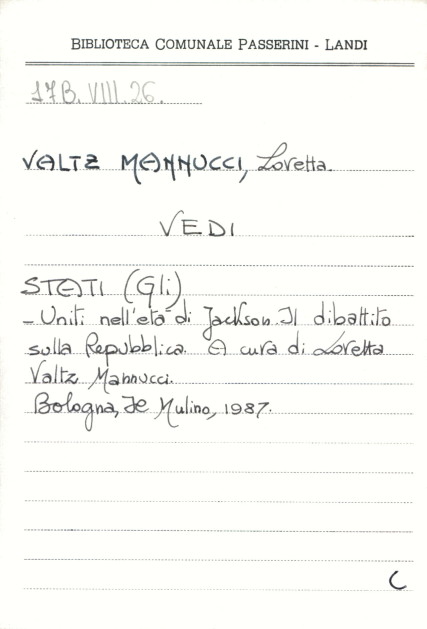 BIBLIOTECA COMUNALE PASSERINI - LANDI
17B.VIII.26.
VALTZ MANNUCCI, Loretta.
VEDI
STATI (Gli)
- Uniti nell'età di Jackson. Il dibattito
sulla Repubblica. A cura di Loretta
Valtz Mannucci.
Bologna, Il Mulino, 1987.
C